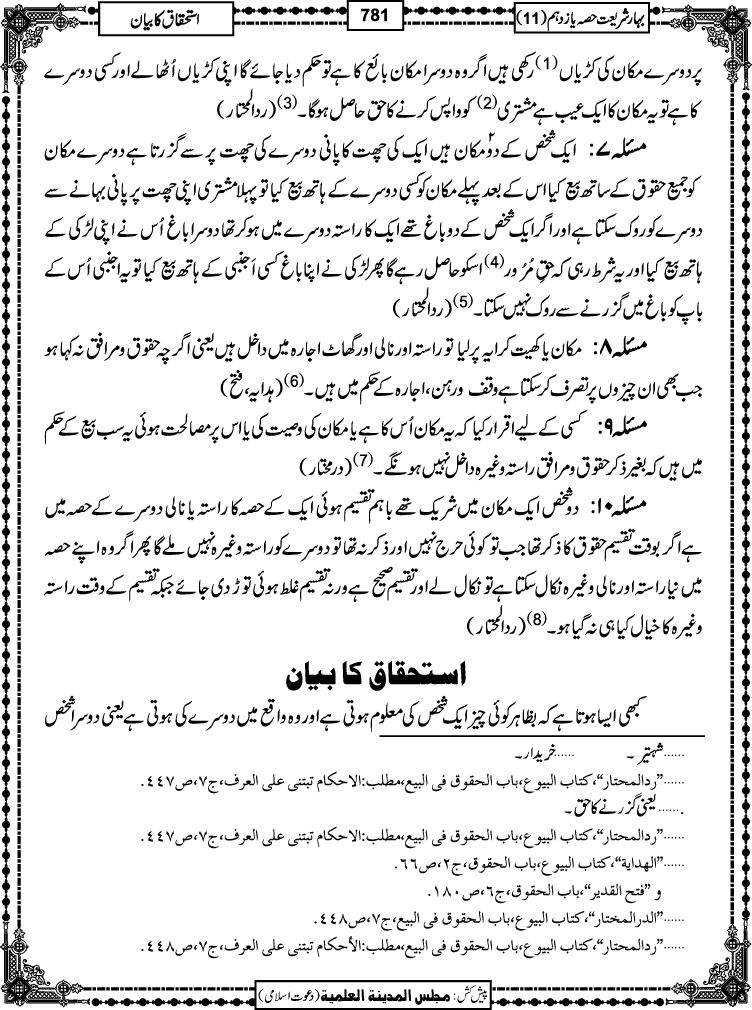 بہارِ شریعت حصہ یازدہم (11)
781
استحقاق کا بیان
پر دوسرے مکان کی کڑیاں (1) رکھی ہیں اگر وہ دوسرا مکان بائع کا ہے تو حکم دیا جائے گا اپنی کڑیاں اُٹھا لے اور کسی دوسرے
کا ہے تو یہ مکان کا ایک عیب ہے مشتری (2) کو واپس کرنے کا حق حاصل ہوگا۔(3) (ردالمحتار)
مسئلہ ۷: ایک شخص کے دو۲ مکان ہیں ایک کی چھت کا پانی دوسرے کی چھت پر سے گزرتا ہے دوسرے مکان
کو جمیع حقوق کے ساتھ بیع کیا اس کے بعد پہلے مکان کو کسی دوسرے کے ہاتھ بیع کیا تو پہلا مشتری اپنی چھت پر پانی بہانے سے
دوسرے کو روک سکتا ہے اور اگر ایک شخص کے دو باغ تھے ایک کا راستہ دوسرے میں ہو کر تھا دوسرا باغ اُس نے اپنی لڑکی کے
ہاتھ بیع کیا اور یہ شرط رہی کہ حقِ مُرُور (4) اسکو حاصل رہے گا پھر لڑکی نے اپنا باغ کسی اَجنبی کے ہاتھ بیع کیا تو یہ اجنبی اُس کے
باپ کو باغ میں گزرنے سے روک نہیں سکتا۔(5) (ردالمحتار)
مسئلہ ۸: مکان یا کھیت کرایہ پر لیا تو راستہ اور نالی اور گھاٹ اجارہ میں داخل ہیں یعنی اگرچہ حقوق و مرافق نہ کہا ہو
جب بھی ان چیزوں پر تصرف کر سکتا ہے وقف و رہن، اجارہ کے حکم میں ہیں۔(6) (ہدایہ، فتح)
مسئلہ ۹: کسی کے لیے اقرار کیا کہ یہ مکان اُس کا ہے یا مکان کی وصیت کی یا اس پر مصالحت ہوئی یہ سب بیع کے حکم
میں ہیں کہ بغیر ذکر حقوق و مرافق راستہ وغیرہ داخل نہیں ہونگے۔(7) (درمختار)
مسئلہ ۱۰: دو شخص ایک مکان میں شریک تھے باہم تقسیم ہوئی ایک کے حصہ کا راستہ یا نالی دوسرے کے حصہ میں
ہے اگر بوقت تقسیم حقوق کا ذکر تھا جب تو کوئی حرج نہیں اور ذکر نہ تھا تو دوسرے کو راستہ وغیرہ نہیں ملے گا پھر اگر وہ اپنے حصہ
میں نیا راستہ اور نالی وغیرہ نکال سکتا ہے تو نکال لے اور تقسیم صحیح ہے ورنہ تقسیم غلط ہوئی توڑ دی جائے جبکہ تقسیم کے وقت راستہ
وغیرہ کا خیال کیا ہی نہ گیا ہو۔(8) (ردالمحتار)
استحقاق کا بیان
کبھی ایسا ہوتا ہے کہ بظاہر کوئی چیز ایک شخص کی معلوم ہوتی ہے اور وہ واقع میں دوسرے کی ہوتی ہے یعنی دوسرا شخص
......شہتیر ۔ ......خریدار۔
......"ردالمحتار"،کتاب البیوع،باب الحقوق فی البیع،مطلب:الاحکام تبتنی علی العرف،ج۷،ص۴۴۷.
.......یعنی گزرنے کا حق۔
......"ردالمحتار"،کتاب البیوع،باب الحقوق فی البیع،مطلب:الاحکام تبتنی علی العرف،ج۷،ص۴۴۷.
......"الھدایة"،کتاب البیوع،باب الحقوق،ج۲،ص۶۶.
و "فتح القدیر"،باب الحقوق،ج۶،ص۱۸۰.
......"الدرالمختار"،کتاب البیوع،باب الحقوق فی البیع،ج۷،ص۴۴۸.
......"ردالمحتار"،کتاب البیوع،باب الحقوق فی البیع،مطلب:الأحکام تبتنی علی العرف،ج۷،ص۴۴۸.
پیش کش: مجلس المدینة العلمیة (دعوت اسلامی)